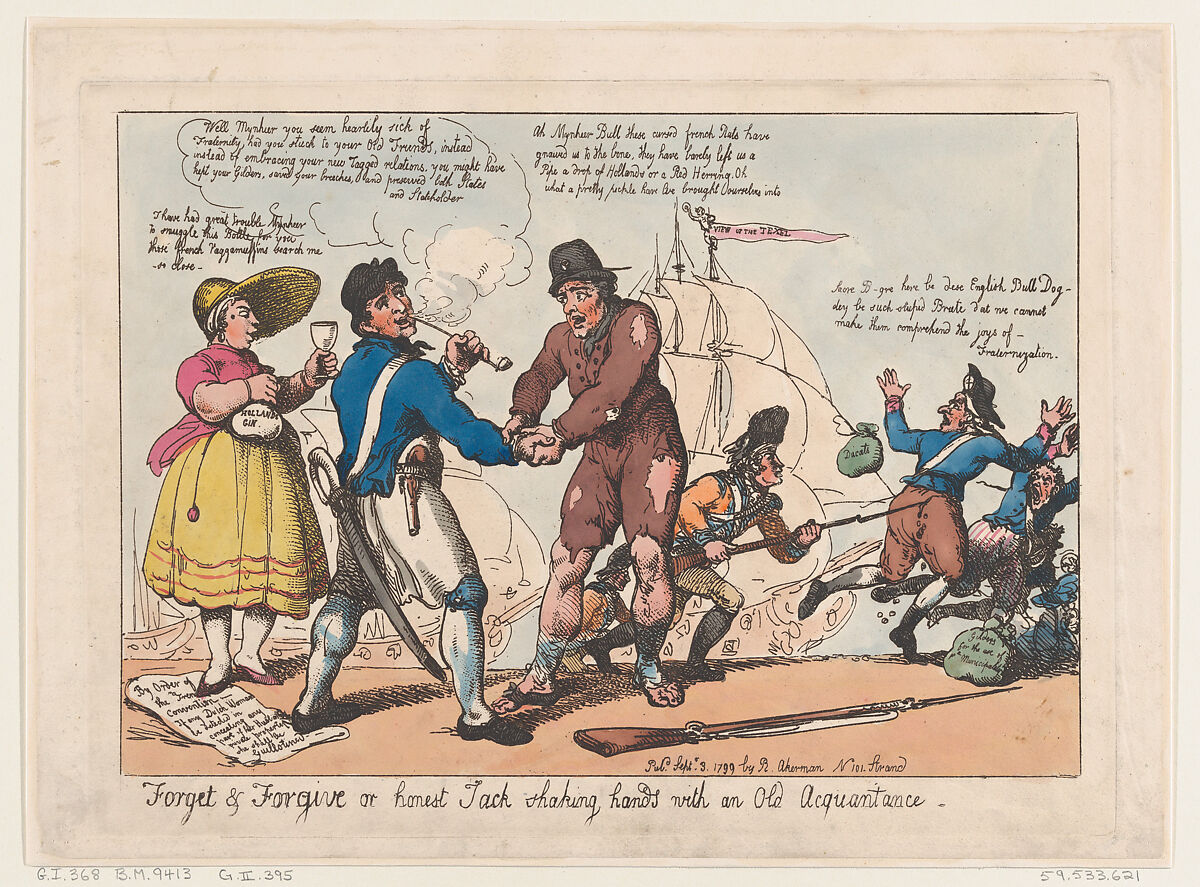 Well Mynheer you seem heartily sick of
Fraternity, had you stuck to your Old Friends, instead
instead of embracing your new Ragged relations, you might have
kept your Gilders, saved your breeches, and preserved both States
and Stateholder
Ah Mynheer Bull these cursed french Rats have
gnawed us to the bone, they have barely left us a
Pipe a drop of Hollands or a Red Herring. Oh
what a pretty pickle have we brought Ourselves into
I have had great trouble Mynheer
to smuggle this Bottle for you
those french raggamuffins search me
so close -
VIEW of the TEXEL
Sacre B-gre here be dese English Bull Dog -
dey be such stupid Brute dat we cannot
make them comprehend the joys of -
Fraternization.
HOLLANDS
GIN.
Ducats
Gilders
for the use of
Municipality
By Order of
the French
Convention
If any Dutch Woman
be detected in
concealing any
part of her Husbands
private property
she shall be
Guillotined
Pub.d Sept.r 3. 1799 by R. Akerman N 101. Strand
Forget & Forgive or honest Jack shaking hands with an Old Acquantance -
G.I.368 B.M.9413 G.II.395
59.533.621